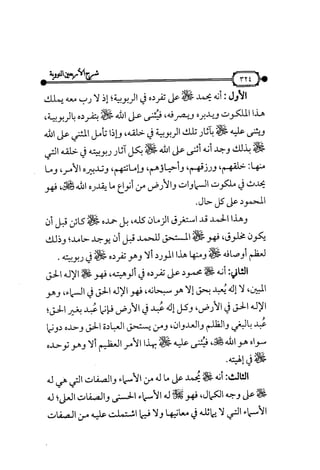 شرح الأربعين النووية
٣٢٤
الأول: أنه يحمد ﷻ على تفرده في الربوبية؛ إذ لا رب معه يملك
هذا الملكوت ويدبره ويصرفه، فيُثنى على الله ﷻ بتفرده بالربوبية،
ويثنى عليه ﷻ بآثار تلك الربوبية في خلقه، وإذا تأمل المثني على الله
ﷻ بذلك وجد أنه أثنى على الله ﷻ بكل آثار ربوبيته في خلقه التي
منها: خلقهم، ورزقهم، وأحياؤهم، وإماتتهم، وتدبيره الأمر، وما
يحدث في ملكوت السماوات والأرض من أنواع ما يقدره الله ﷻ، فهو
المحمود على كل حال.
وهذا الحمد قد استغرق الزمان كله، بل حمده ﷻ كائن قبل أن
يكون مخلوق، فهو ﷻ المستحق للحمد قبل أن يوجد حامد؛ وذلك
لعظم أوصافه ﷻ ومنها هذا المورد ألا وهو تفرده ﷻ في ربوبيته.
الثاني: أنه ﷻ محمود على تفرده في ألوهيته، فهو ﷻ الإله الحق
المبين، لا إله يُعبد بحق إلا هو سبحانه، فهو الإله الحق في السماء، وهو
الإله الحق في الأرض، وكل إله عُبد في الأرض فإنما عُبد بغير الحق؛
عُبد بالبغي والظلم والعدوان، ومن يستحق العبادة الحق وحده دونما
سواه هو الله ﷻ، فيُثنى عليه ﷻ بهذا الأمر العظيم ألا وهو توحده
ﷻ في إلهيته.
الثالث: أنه ﷻ يُحمد على ما له من الأسماء والصفات التي هي له
ﷻ على وجه الكمال، فهو ﷻ له الأسماء الحسنى والصفات العلى؛ له
الأسماء التي لا يماثله في معانيها ولا فيما اشتملت عليه من الصفات